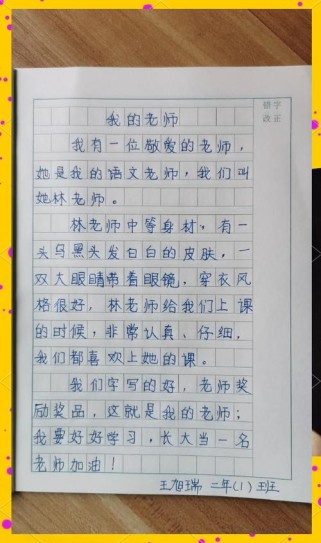 错字
改正
我的老师
我有一位敬爱的老师，
她是我的语文老师，我们叫
她林老师。
林老师中等身材，有一
头乌黑头发白白的皮肤，一
双大眼睛带着眼镜，穿衣风
格很好，林老师给我们上课
的时候，非常认真、仔细，
我们都喜欢上她的课。
我们字写的好，老师奖
励奖品，这就是我的老师；
我要好好学习，长大当一名
老师加油！
王旭瑞 二年(1)班